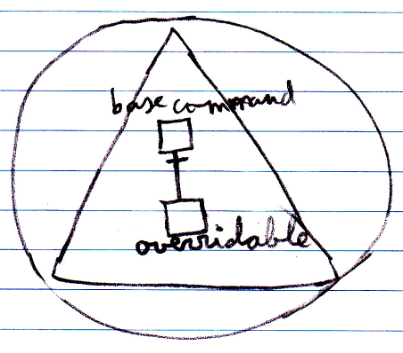 base command
overridable